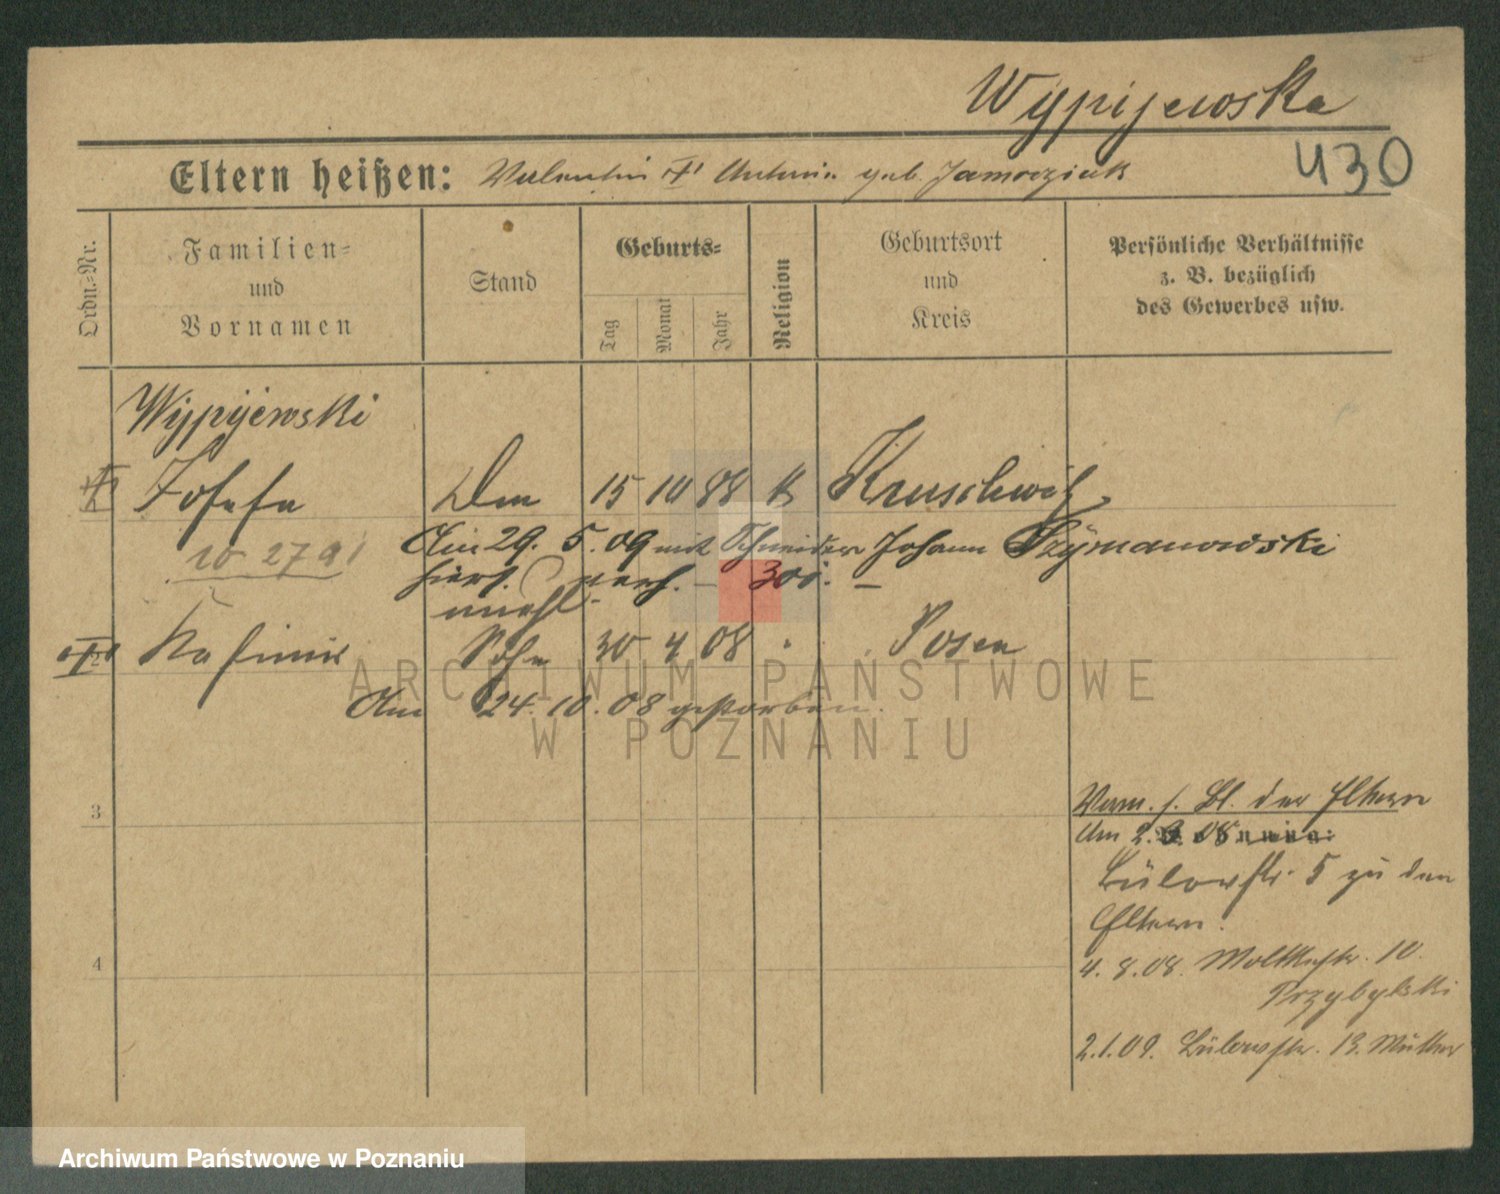 Wypijewska
430
Eltern heißen: Valentin u. Antonie geb. Jamrozziak
Ordn.=Nr.
Familien=
und
Vornamen
Stand
Geburts=
Tag
Monat
Jahr
Religion
Geburtsort
und
Kreis
Persönliche Verhältnisse
z. B. bezüglich
des Gewerbes usw.
Wypijewski
Josefa Dm 15 10 88 k Kruschwitz
Am 29. 5. 09 mit Schneider Johann Szymanowski
hierf. verh. 300.
unehl.
Kasimir Sohn 30 4 08 " Posen
Am 24. 10. 08 gestorben.
3
4
Vorm. s. Bl. der Eltern
Am 2. 08 Wohnung:
Bülowstr. 5 zu den
Eltern.
4. 8. 08. Moltkestr. 10.
Przybylski
2.1.09. Bülowstr. 13. Mutter
ARCHIWUM PAŃSTWOWE
W POZNANIU
Archiwum Państwowe w Poznaniu